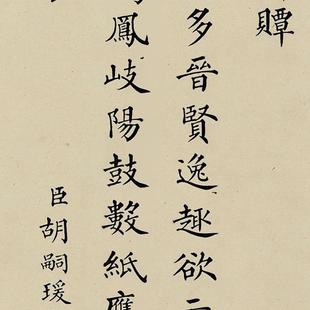 贉
多晉賢逸趣欲
鳳岐陽鼓數紙應
臣胡嗣瑗